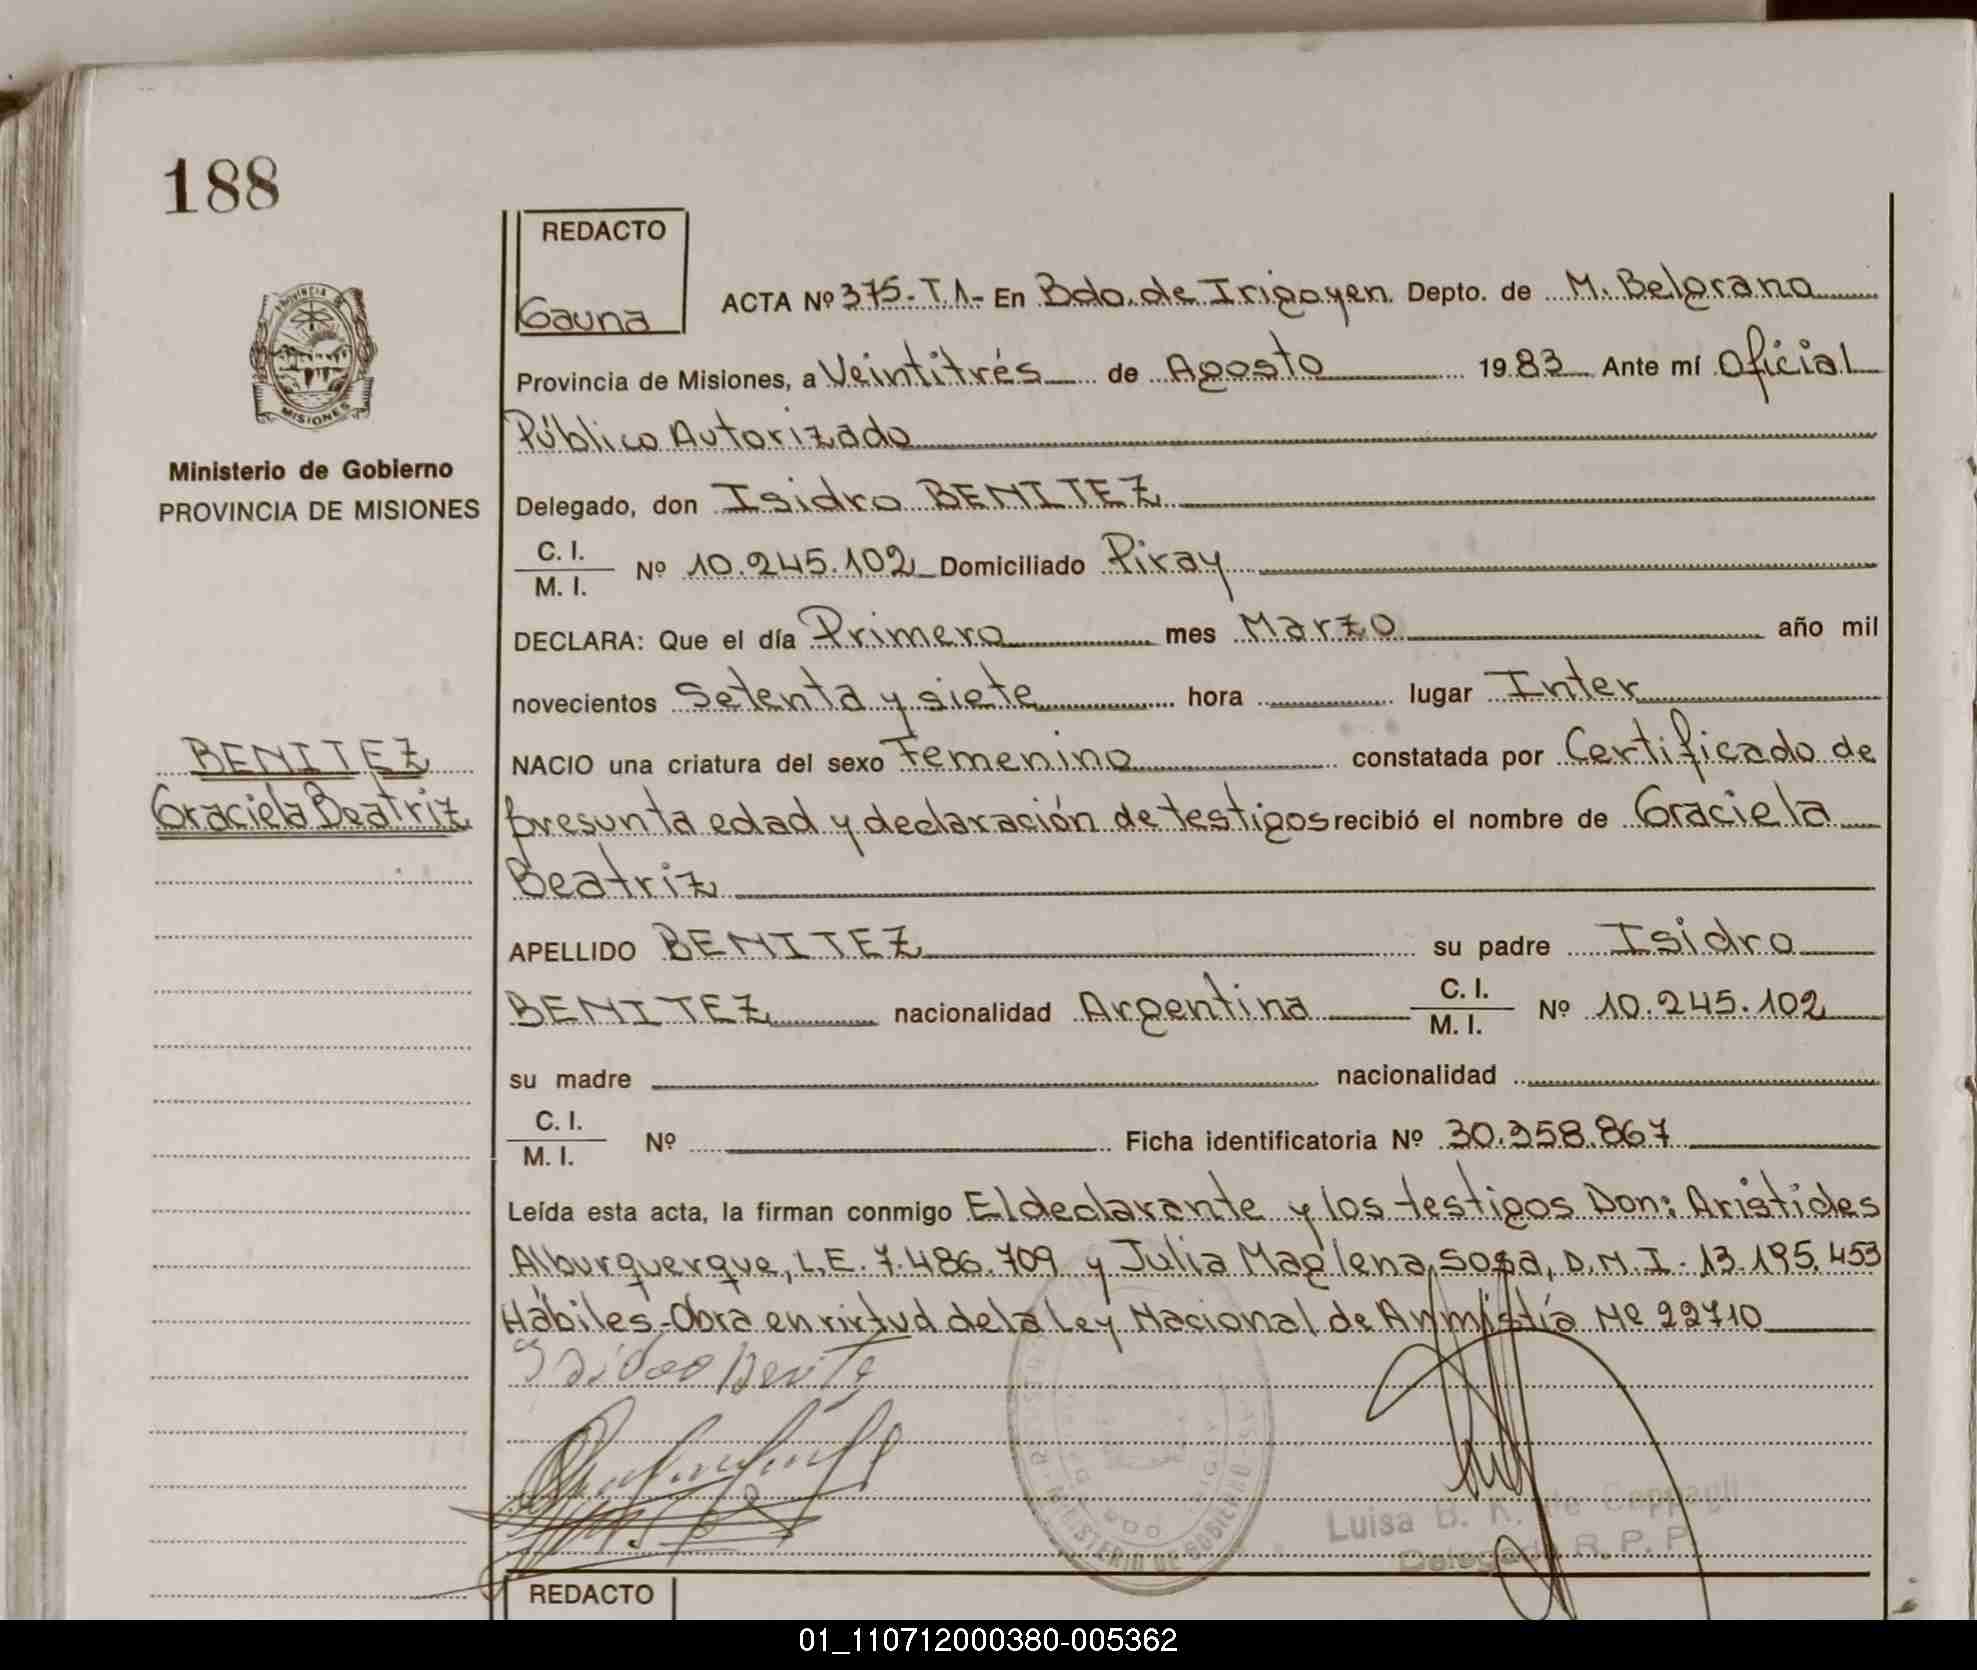 188
REDACTO
Gauna
ACTA Nº 375-T.1- En Bdo. de Irigoyen Depto. de M. Belgrano
Provincia de Misiones, a Veintitrés de Agosto 1983 Ante mí Oficial
Público Autorizado
Delegado, don Isidro BENITEZ
C. I.
M. I. Nº 10.245.102 Domiciliado Piray
DECLARA: Que el día Primero mes Marzo año mil
novecientos Setenta y siete hora lugar Inter
NACIO una criatura del sexo Femenino constatada por Certificado de
presunta edad y declaración de testigos recibió el nombre de Graciela
Beatriz
APELLIDO BENITEZ su padre Isidro
BENITEZ nacionalidad Argentina C. I.
M. I. Nº 10.245.102
su madre nacionalidad
C. I.
M. I. Nº Ficha identificatoria Nº 30.358.867
Leída esta acta, la firman conmigo El declarante y los testigos Don: Aristides
Alburquerque, L.E. 7.486.709 y Julia Maglena Sosa, D.N.I. 13.195.453
Hábiles-Obra en virtud de la Ley Nacional de Anmistía Nº 22710
Isidro Benite
MINISTERIO DE GOBIERNO
Luisa B. K. de
Delegada R. P. P.
REDACTO
PROVINCIA DE
MISIONES
Ministerio de Gobierno
PROVINCIA DE MISIONES
BENITEZ
Graciela Beatriz
01_110712000380-005362